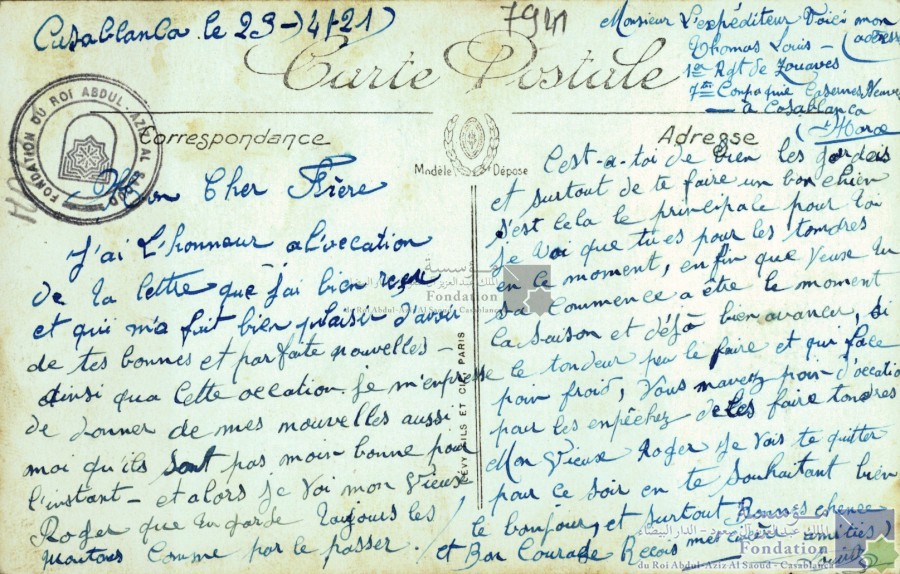 Casablanca le 23-4-21
7941
Carte Postale
Monsieur L'expéditeur Voici mon
adresse
Thomas Louis -
1er Rgt de Zouaves
7em Conpagnie Casernes Neuves
- a Casablanca
Maroc
FONDATION DU ROI ABDUL-AZIZ AL SAOUD
Correspondance
Modèle Déposé
Adresse
Mon Cher Frère
J'ai L'honneur a l'occation
de la lettre que j'ai bien reçu
et qui m'a fait bien plaisir d'avoir
de tes bonnes et parfaite nouvelles -
ainsi qua cette occation je m'enprese
de donner de mes nouvelles aussi
moi qu'ils sont pas moin bonne pour
l'instant - et alors je voi mon vieux
Roger que tu garde toujours les
moutons comme par le passer.
LEVY FILS ET CIE, PARIS
C'est-a-toi de bien les gardais
et surtout de te faire un bon chien
s'est cela le principale pour toi
je voi que tu es pour les tondres
en le moment, en fin que veuse tu
sa commence a être le moment
la saison et déjà bien avancer, si
le tondeur peu le faire et qui face
poin froid, vous n'avez poin d'occation
pour les enpêchez de les faire tondres
Mon vieux Roger je vais te quitter
pour ce soir en te souhaitant bien
le bonjour, et surtout Bonnes chence
et Bon Courage Recois amitiés
مؤسسة
الملك عبد العزيز
Fondation
du Roi Abdul-Aziz Al Saoud - Casablanca
الملك عبد العزيز آل سعود - الدار البيضاء
Fondation
du Roi Abdul-Aziz Al Saoud - Casablanca